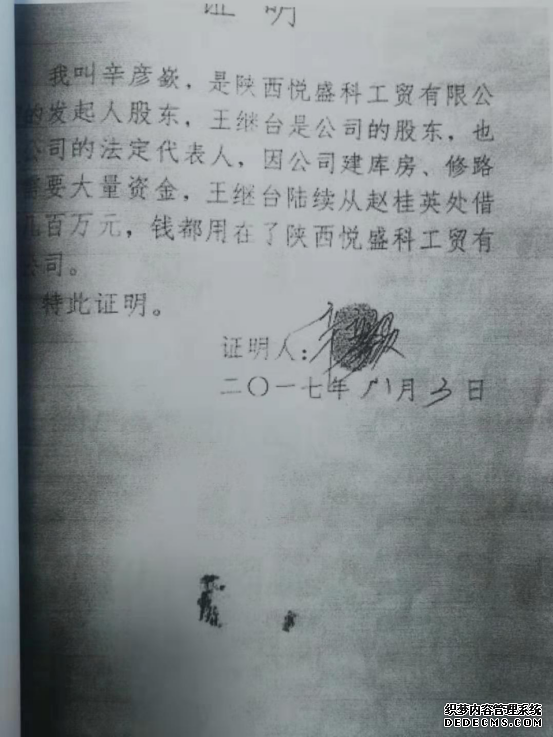 证明
我叫辛彦燚，是陕西悦盛科工贸有限公
的发起人股东，王继台是公司的股东，也
公司的法定代表人，因公司建库房、修路
需要大量资金，王继台陆续从赵桂英处借
几百万元，钱都用在了陕西悦盛科工贸有
公司。
特此证明。
证明人：
二〇一七年八月3日
织梦内容管理系统
DEDECMS.COM